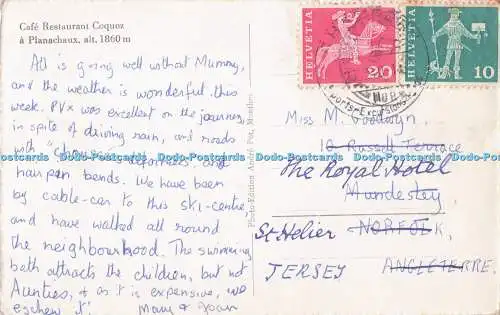 Café Restaurant Coquoz
à Planachaux, alt. 1860 m
All is going well without Mummy,
and the weather is wonderful this
week. PVX was excellent on the journey
in spite of driving rain, and roads
with "chaussée déformée" and
hairpen bends. We have been
by cable-car to this ski-centre,
and have walked all round
the neighbourhood. The swimming
bath attracts the children, but not
Aunties, & as it is expensive, we
eschew it! Mary & Joan
Photo-Edition
HELVETIA
20
HELVETIA
10
Miss M. Goodwyn
10 Russell Terrace
The Royal Hotel
Mundesley
St. Helier NORFOLK,
JERSEY ANGLETERRE.
Dodo-Postcards Dodo-Postcards Dodo-Postcards Dodo-Postcards